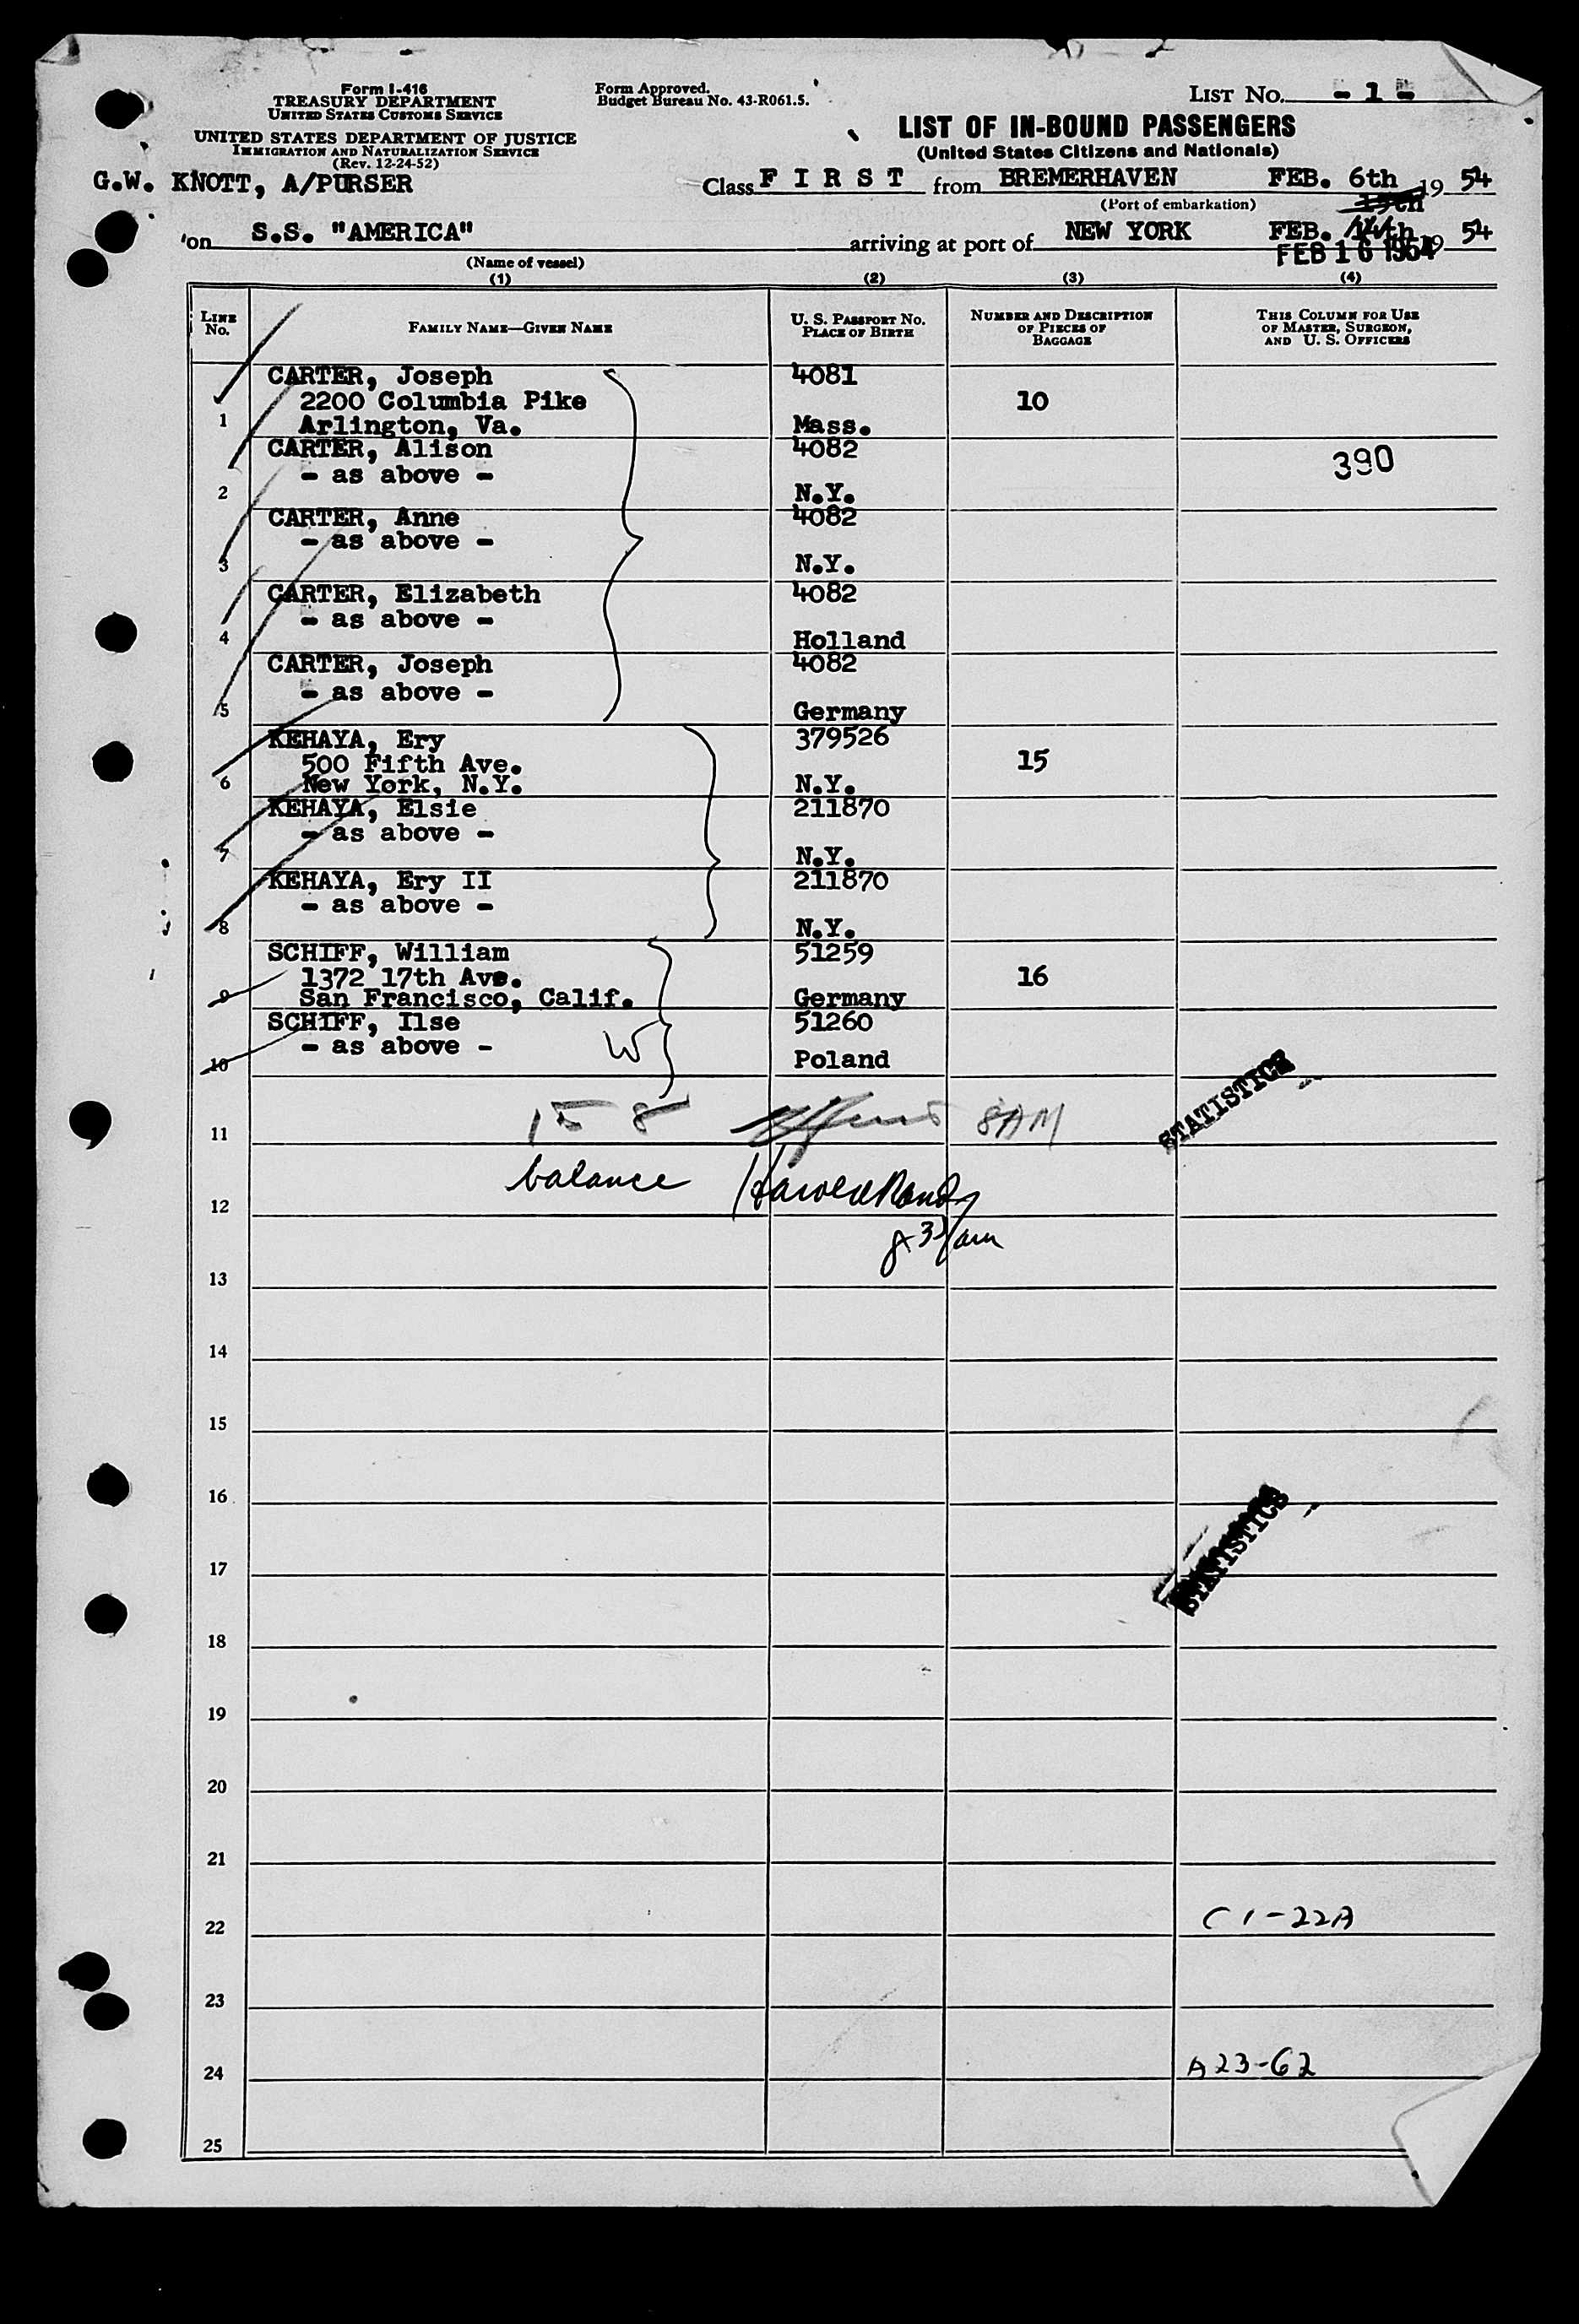 Form I-416
TREASURY DEPARTMENT
UNITED STATES CUSTOMS SERVICE
UNITED STATES DEPARTMENT OF JUSTICE
IMMIGRATION AND NATURALIZATION SERVICE
(Rev. 12-24-52)
Form Approved.
Budget Bureau No. 43-R061.5.
LIST NO. - 1 -
LIST OF IN-BOUND PASSENGERS
(United States Citizens and Nationals)
G.W. KNOTT, A/PURSER
Class F I R S T from BREMERHAVEN FEB. 6th 19 54
(Port of embarkation)
on S.S. "AMERICA" arriving at port of NEW YORK FEB. 19 54
FEB 16 1954
(Name of vessel)
(1) (2) (3) (4)
LINE No. FAMILY NAME—GIVEN NAME U. S. PASSPORT NO. PLACE OF BIRTH NUMBER AND DESCRIPTION OF PIECES OF BAGGAGE THIS COLUMN FOR USE OF MASTER, SURGEON, AND U. S. OFFICERS
CARTER, Joseph 4081
2200 Columbia Pike 10
1 Arlington, Va. Mass.
CARTER, Alison 4082
- as above - 390
2 N.Y.
CARTER, Anne 4082
- as above -
3 N.Y.
CARTER, Elizabeth 4082
- as above -
4 Holland
CARTER, Joseph 4082
- as above -
5 Germany
KEHAYA, Ery 379526
500 Fifth Ave. 15
6 New York, N.Y. N.Y.
KEHAYA, Elsie 211870
- as above -
7 N.Y.
KEHAYA, Ery II 211870
- as above -
8 N.Y.
SCHIFF, William 51259
1372 17th Ave. 16
9 San Francisco, Calif. Germany
SCHIFF, Ilse 51260
- as above - W
10 Poland
STATISTICS
11 8AM
balance
12
13
14
15
16
STATISTICS
17
18
19
20
21
22 C 1-22A
23
24 A 23-62
25